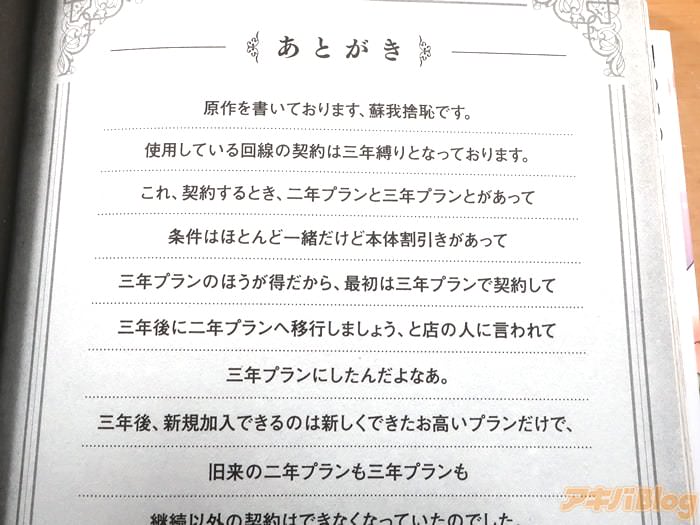 あとがき
原作を書いております、蘇我捨恥です。
使用している回線の契約は三年縛りとなっております。
これ、契約するとき、二年プランと三年プランとがあって
条件はほとんど一緒だけど本体割引きがあって
三年プランのほうが得だから、最初は三年プランで契約して
三年後に二年プランへ移行しましょう、と店の人に言われて
三年プランにしたんだよなあ。
三年後、新規加入できるのは新しくできたお高いプランだけで、
旧来の二年プランも三年プランも
継続以外の契約はできなくなっていたのでした。
アキバBlog